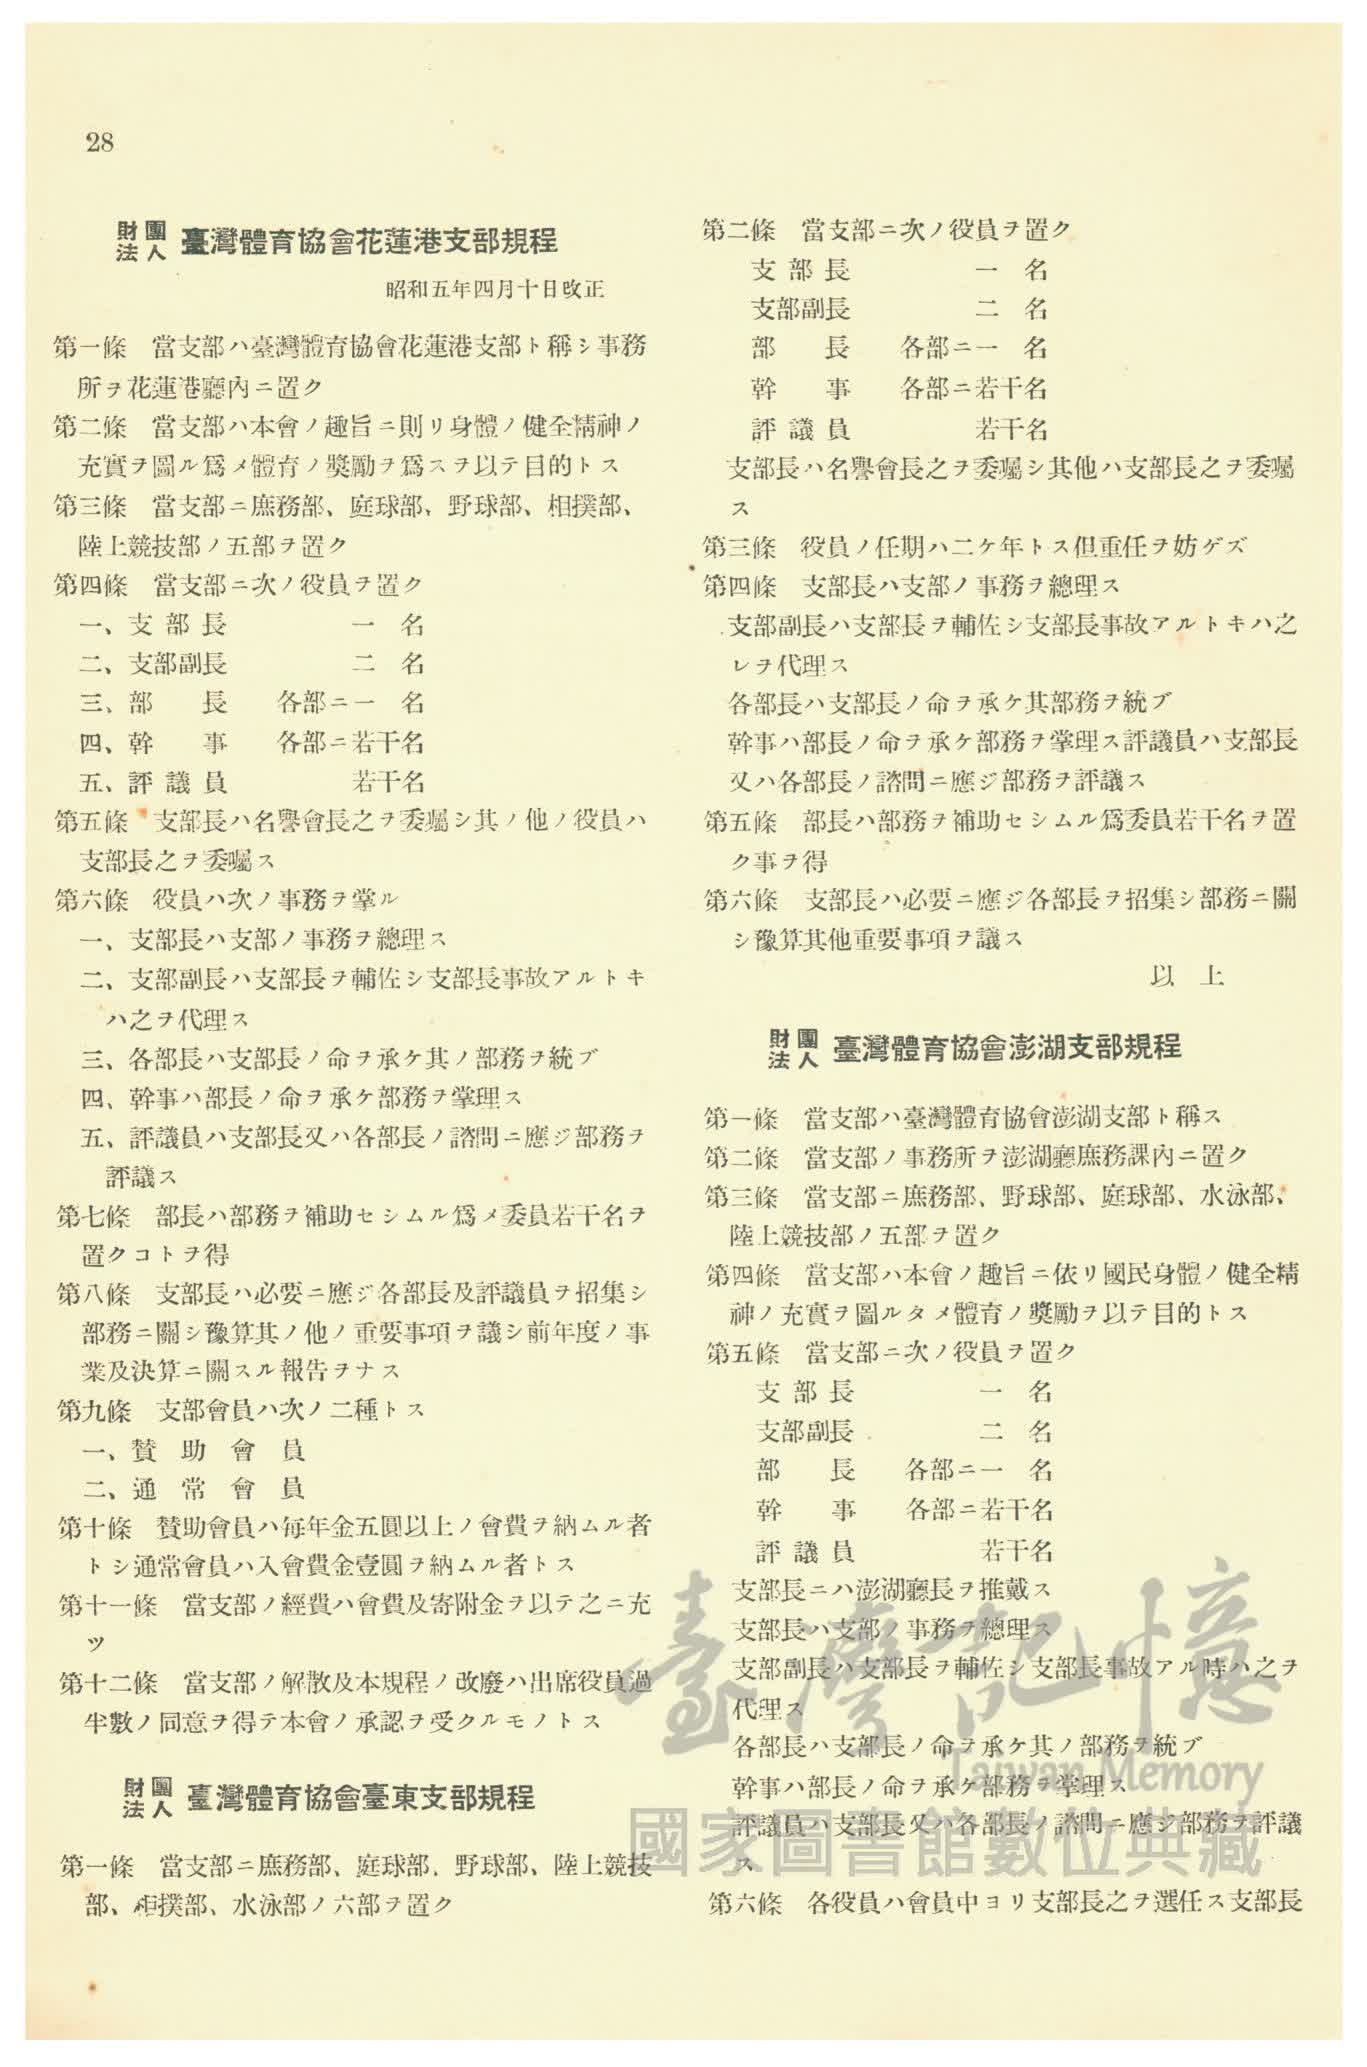 28
財團法人 臺灣體育協會花蓮港支部規程
昭和五年四月十日改正
第一條　當支部ハ臺灣體育協會花蓮港支部ト稱シ事務
所ヲ花蓮港廳內ニ置ク
第二條　當支部ハ本會ノ趣旨ニ則リ身體ノ健全精神ノ
充實ヲ圖ル爲メ體育ノ獎勵ヲ爲スヲ以テ目的トス
第三條　當支部ニ庶務部、庭球部、野球部、相撲部、
陸上競技部ノ五部ヲ置ク
第四條　當支部ニ次ノ役員ヲ置ク
一、支部長　一名
二、支部副長　二名
三、部長　各部ニ一名
四、幹事　各部ニ若干名
五、評議員　若干名
第五條　支部長ハ名譽會長之ヲ委囑シ其ノ他ノ役員ハ
支部長之ヲ委囑ス
第六條　役員ハ次ノ事務ヲ掌ル
一、支部長ハ支部ノ事務ヲ總理ス
二、支部副長ハ支部長ヲ輔佐シ支部長事故アルトキ
ハ之ヲ代理ス
三、各部長ハ支部長ノ命ヲ承ケ其ノ部務ヲ統ブ
四、幹事ハ部長ノ命ヲ承ケ部務ヲ掌理ス
五、評議員ハ支部長又ハ各部長ノ諮問ニ應ジ部務ヲ
評議ス
第七條　部長ハ部務ヲ補助セシムル爲メ委員若干名ヲ
置クコトヲ得
第八條　支部長ハ必要ニ應ジ各部長及評議員ヲ招集シ
部務ニ關シ豫算其ノ他ノ重要事項ヲ議シ前年度ノ事
業及決算ニ關スル報告ヲナス
第九條　支部會員ハ次ノ二種トス
一、贊助會員
二、通常會員
第十條　贊助會員ハ每年金五圓以上ノ會費ヲ納ムル者
トシ通常會員ハ入會費金壹圓ヲ納ムル者トス
第十一條　當支部ノ經費ハ會費及寄附金ヲ以テ之ニ充
ツ
第十二條　當支部ノ解散及本規程ノ改廢ハ出席役員過
半數ノ同意ヲ得テ本會ノ承認ヲ受クルモノトス
財團法人 臺灣體育協會臺東支部規程
第一條　當支部ニ庶務部、庭球部、野球部、陸上競技
部、相撲部、水泳部ノ六部ヲ置ク
第二條　當支部ニ次ノ役員ヲ置ク
支部長　一名
支部副長　二名
部長　各部ニ一名
幹事　各部ニ若干名
評議員　若干名
支部長ハ名譽會長之ヲ委囑シ其他ハ支部長之ヲ委囑
ス
第三條　役員ノ任期ハ二ケ年トス但重任ヲ妨ゲズ
第四條　支部長ハ支部ノ事務ヲ總理ス
支部副長ハ支部長ヲ輔佐シ支部長事故アルトキハ之
レヲ代理ス
各部長ハ支部長ノ命ヲ承ケ其部務ヲ統ブ
幹事ハ部長ノ命ヲ承ケ部務ヲ掌理ス評議員ハ支部長
又ハ各部長ノ諮問ニ應ジ部務ヲ評議ス
第五條　部長ハ部務ヲ補助セシムル爲委員若干名ヲ置
ク事ヲ得
第六條　支部長ハ必要ニ應ジ各部長ヲ招集シ部務ニ關
シ豫算其他重要事項ヲ議ス
以上
財團法人 臺灣體育協會澎湖支部規程
第一條　當支部ハ臺灣體育協會澎湖支部ト稱ス
第二條　當支部ノ事務所ヲ澎湖廳庶務課內ニ置ク
第三條　當支部ニ庶務部、野球部、庭球部、水泳部、
陸上競技部ノ五部ヲ置ク
第四條　當支部ハ本會ノ趣旨ニ依リ國民身體ノ健全精
神ノ充實ヲ圖ルタメ體育ノ獎勵ヲ以テ目的トス
第五條　當支部ニ次ノ役員ヲ置ク
支部長　一名
支部副長　二名
部長　各部ニ一名
幹事　各部ニ若干名
評議員　若干名
支部長ニハ澎湖廳長ヲ推戴ス
支部長ハ支部ノ事務ヲ總理ス
支部副長ハ支部長ヲ輔佐シ支部長事故アル時ハ之ヲ
代理ス
各部長ハ支部長ノ命ヲ承ケ其ノ部務ヲ統ブ
幹事ハ部長ノ命ヲ承ケ部務ヲ掌理ス
評議員ハ支部長又ハ各部長ノ諮問ニ應ジ部務ヲ評議
ス
第六條　各役員ハ會員中ヨリ支部長之ヲ選任ス支部長
臺灣記憶
Taiwan Memory
國家圖書館數位典藏